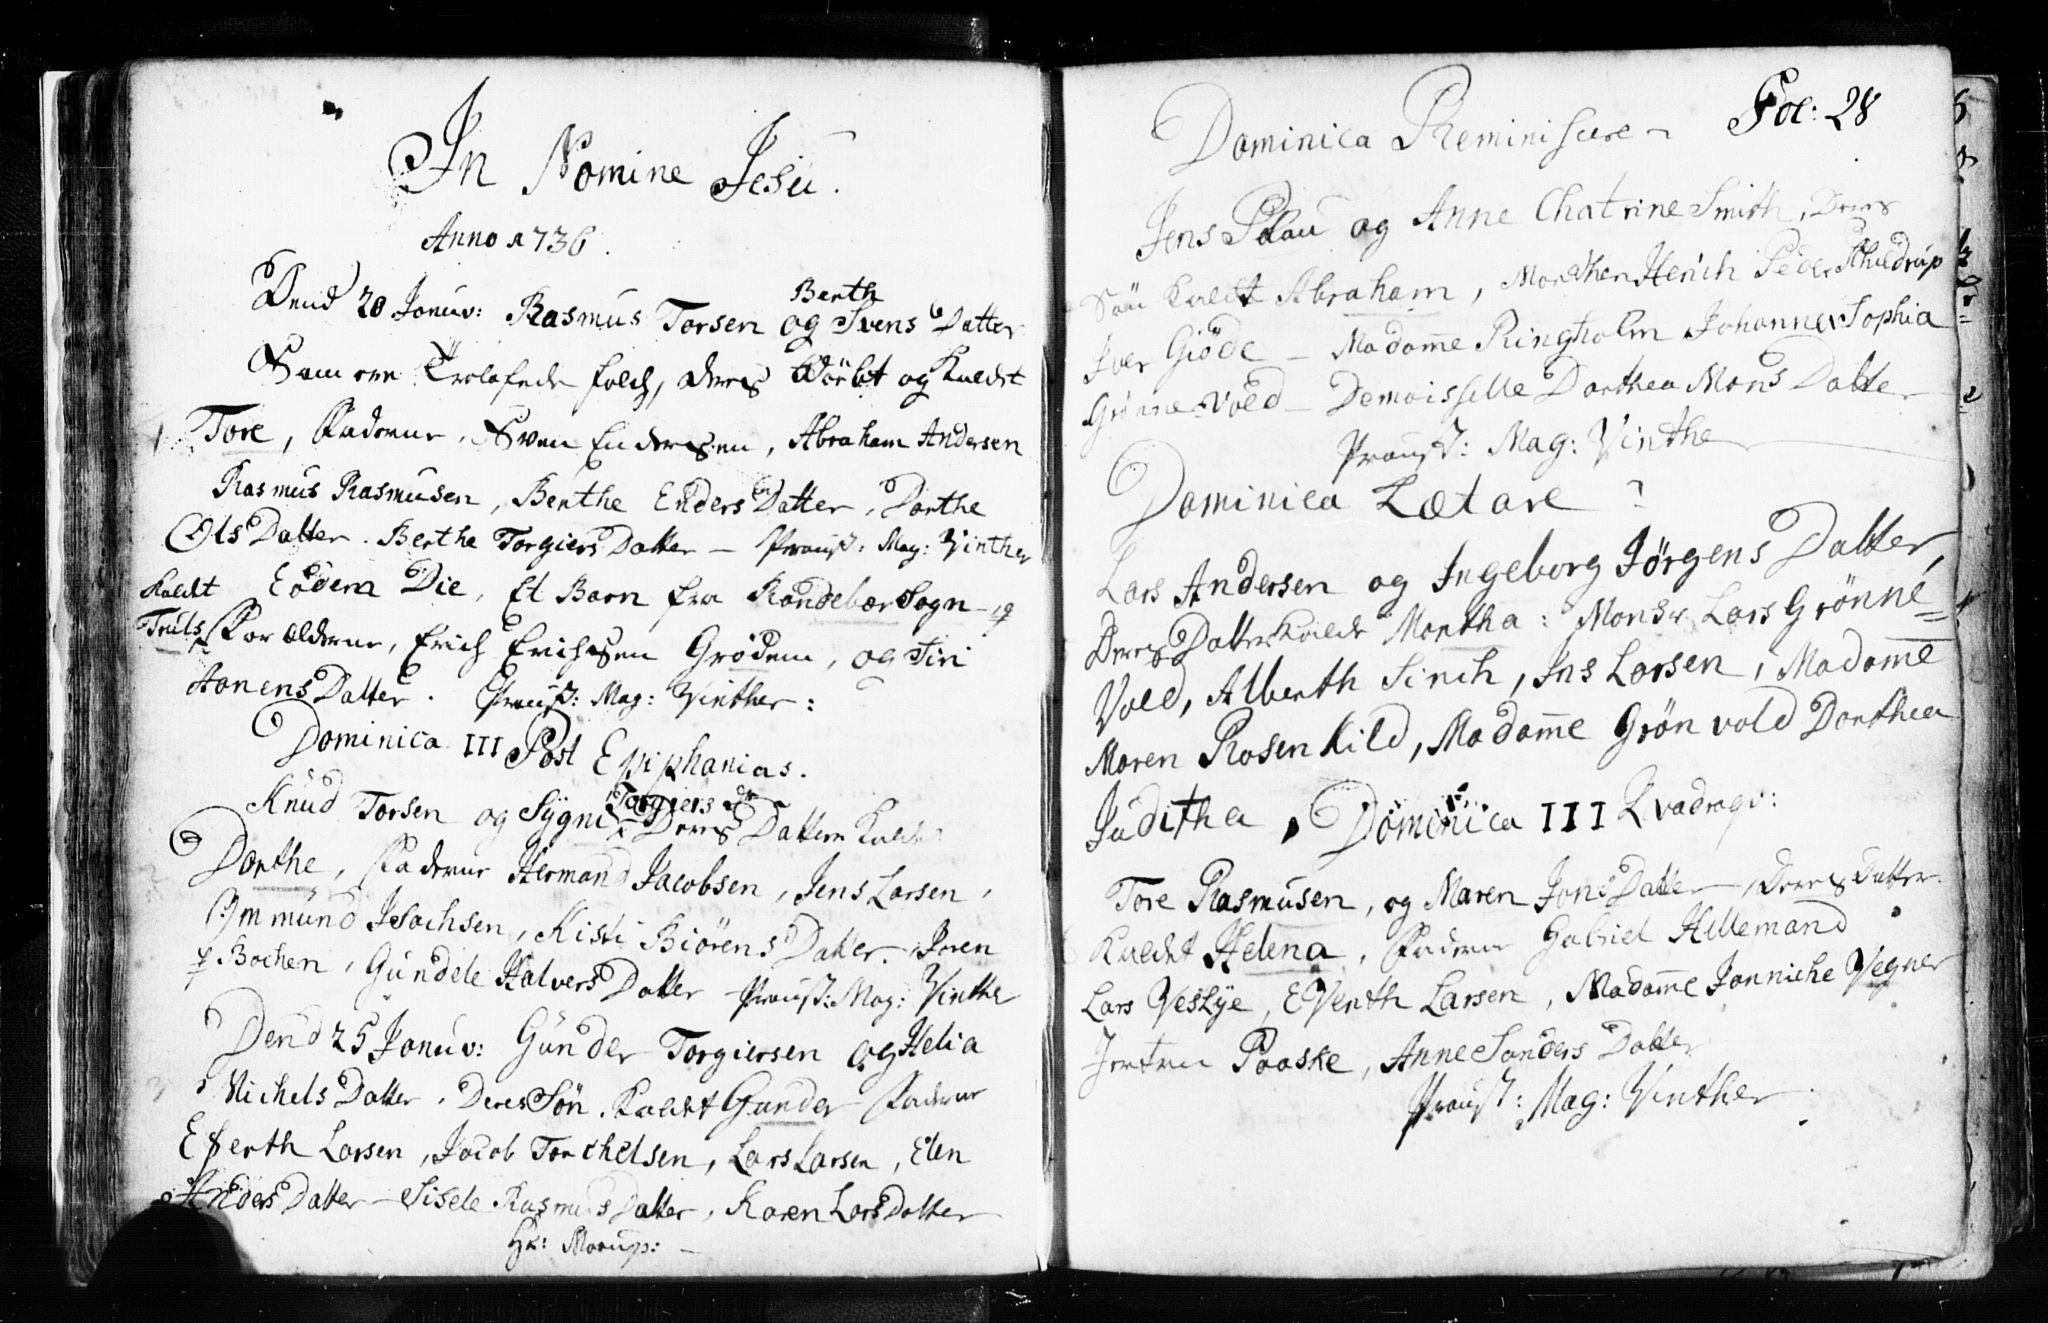 In Nomine Jesu.
Anno 1736.
Dend 20 Januv: Rasmus Torsen og Berth Svens Datter
Som ere Trolofede folch, deres Döebt og Kaldet
1 Tore, Fadrene, Sven Endersen, Abraham Andersen
Rasmus Rasmusen, Berthe Enders Datter, Dorthe
Ols Datter. Berthe Torgiers Datter – Proust: Mag: Vinther
Eodem Die, Et Barn fra Randebær Sogn
Kaldt Truls
For Ælderne, Erich Erichsen Grödem, og Siri
Aanens Datter. Proust: Mag: Vinther:
Dominica III Post Epiphanias.
Knud Torsen og Sygni Torgiers dr Deres Datter Kaldt
Dorthe, Fadrene Hermand Jacobsen, Jens Larsen,
Ommund Isachsen, Kisti Biörens Datter. Joren
Bochen, Gundele Halvers Datter Proust: Mag: Vinthe
Dend 25 Januv: Gunder Torgiersen og Helia
Michels Datter. Deres Sön. Kaldet Gunder Fadrene
Efserth Larsen, Jacob Torchelsen, Lars Larsen, Elen
Anders Datter – Sisele Rasmus Datter, Karen Lars Datter
Hr: Morup: –
Fol: 28
Dominica Reminiscere
Jens Schau og Anne Chatrine Smith, Deres
Sön Kaldet Abraham, Monshr Henrich Peder Schieldrup
Iver Giöde – Madame Ringholm Johanne Sophia
Grönne Vold – Demoisselle Dorthea Mons Datter
Proust: Mag: Vinthe
Dominica Lætare
Lars Andersen og Ingeborg Jörgens Datter,
Deres Datter Kaldt Martha: Monsr Lars Grönne=
Vold, Alberth Sinch, Jns Larsen, Madame
Maren Rosenkild, Madame Grönvold Dorthea
Juditha, Dominica III Qvadrag:
Tore Rasmusen, og Maren Jons Datter, Deres Datter
Kaldet Helena, Fadrene Gabriel Hillemand
Lars Veslye, Eventh Larsen, Madame Janniche Vegner
Jertru Paaske, Anne Sanders Datter
Proust: Mag: Vinther